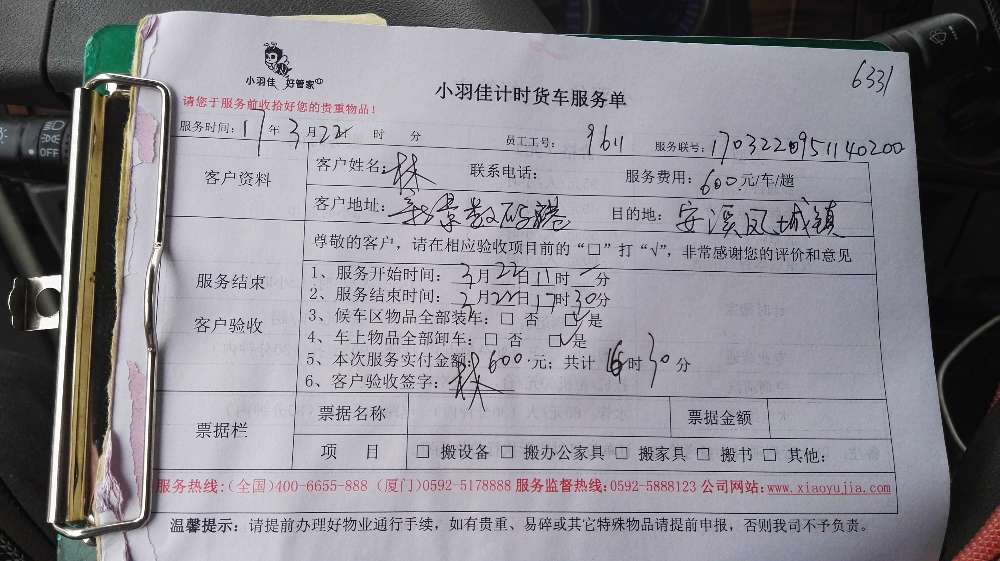 6331
小羽佳 好管家
小羽佳计时货车服务单
请您于服务前收拾好您的贵重物品！
服务时间：17年3月22日 时 分 员工工号：9611 服务联号：1703220951140200
客户资料
客户姓名：林 联系电话： 服务费用：600元/车/趟
客户地址： 数码港 目的地：安溪凤城镇
尊敬的客户，请在相应验收项目前的“□”打“√”，非常感谢您的评价和意见
服务结束
客户验收
1、服务开始时间：3月22日11时 分
2、服务结束时间：3月22日17时30分
3、候车区物品全部装车：□ 否 ☑是
4、车上物品全部卸车：□ 否 ☑是
5、本次服务实付金额：600元；共计 时30分
6、客户验收签字：林
票据栏
票据名称 票据金额
项 目 □ 搬设备 □ 搬办公家具 □ 搬家具 □ 搬书 □ 其他：
服务热线：(全国)400-6655-888 (厦门)0592-5178888 服务监督热线：0592-5888123 公司网站：www.xiaoyujia.com
温馨提示：请提前办理好物业通行手续，如有贵重、易碎或其它特殊物品请提前申报，否则我司不予负责。
OFF